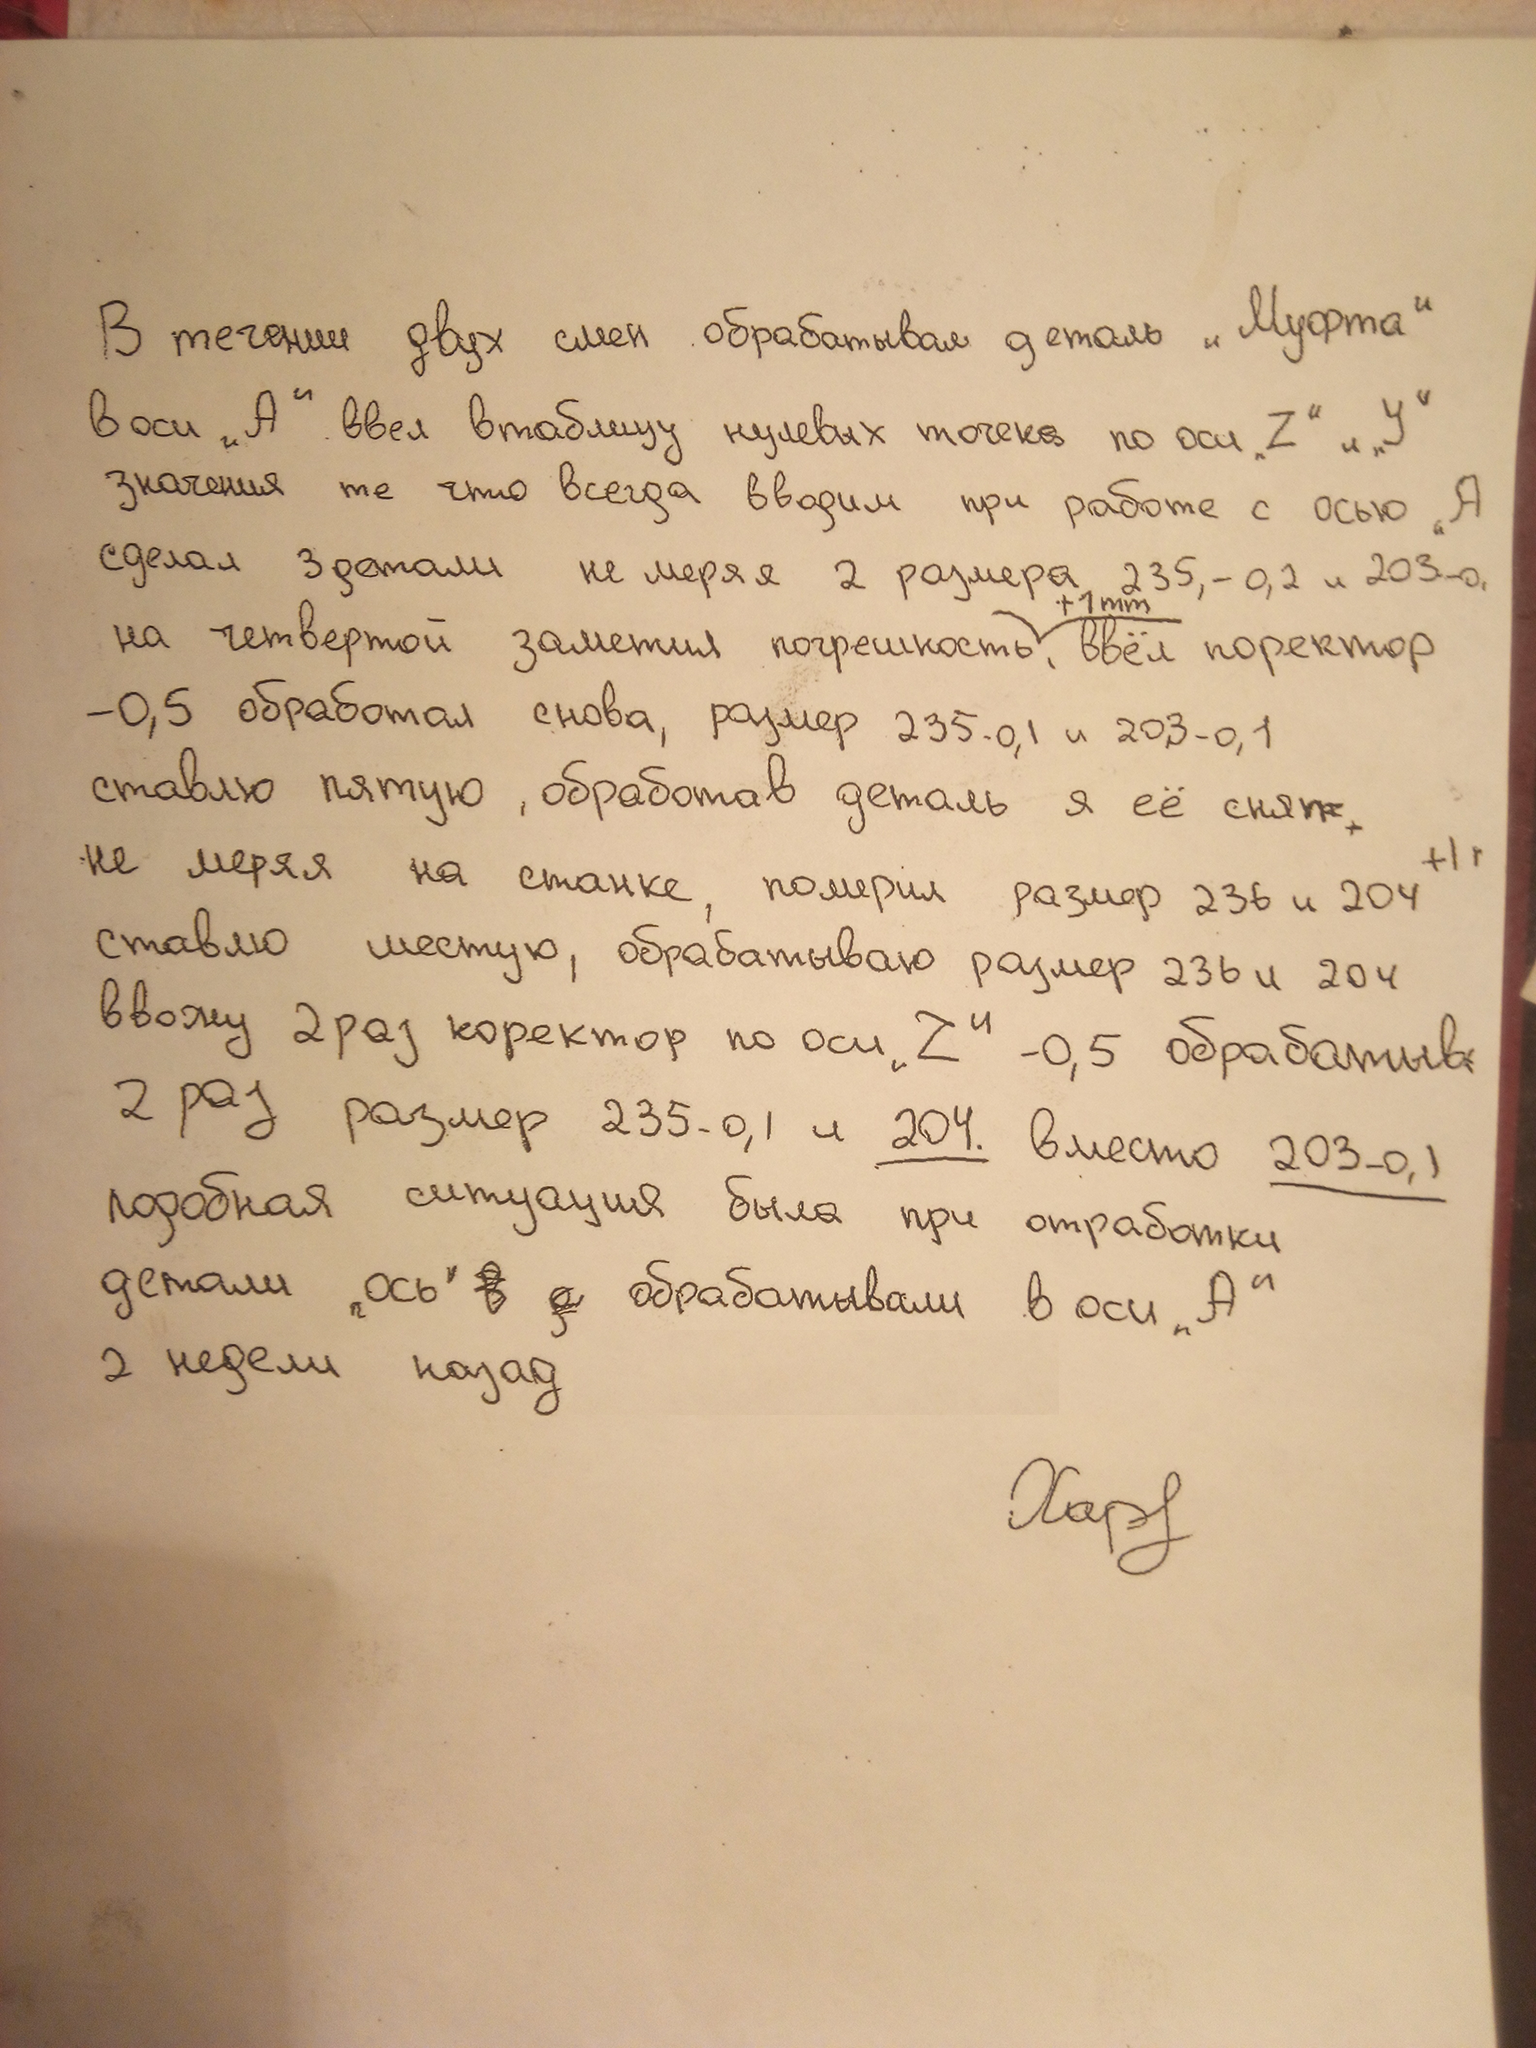 В течении двух смен обрабатывал деталь „Муфта“
в оси „А“ ввел в таблицу нулевых точек по оси „Z“ и „У“
значения те что всегда вводим при работе с осью „А
сделал 3 детали не меряя 2 размера 235,-0,2 и 203-0,
+1mm
на четвертой заметил погрешность, ввёл коректор
-0,5 обработал снова, размер 235-0,1 и 203-0,1
ставлю пятую, обработав деталь я её снял
не меряя на станке, померил размер 236 и 204 +1
ставлю шестую, обрабатываю размер 236 и 204
ввожу 2 раз коректор по оси „Z“ -0,5 обрабатыв
2 раз размер 235-0,1 и 204. вместо 203-0,1
подобная ситуация была при отработки
детали „ось“ обрабатывали в оси „А“
2 недели назад